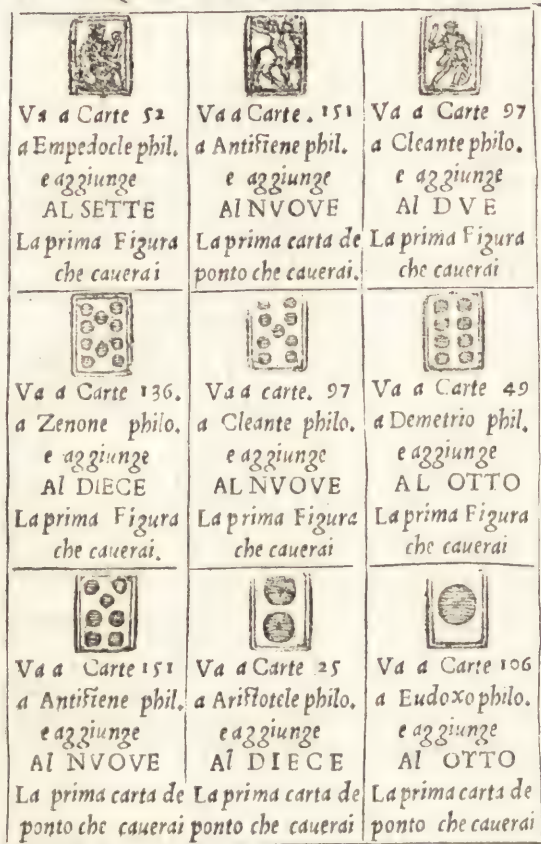 Va a Carte 52
a Empedocle phil.
e aggiunge
AL SETTE
La prima Figura
che cauerai
Va a Carte . 151
a Antistene phil.
e aggiunge
Al NVOVE
La prima carta de
ponto che cauerai.
Va a Carte 97
a Cleante philo.
e aggiunge
Al DVE
La prima Figura
che cauerai
Va a Carte 136.
a Zenone philo.
e aggiunge
Al DIECE
La prima Figura
che cauerai.
Va a carte. 97
a Cleante philo.
e aggiunge
AL NVOVE
La prima Figura
che cauerai
Va a Carte 49
a Demetrio phil.
e aggiunge
AL OTTO
La prima Figura
che cauerai
Va a Carte 151
a Antistene phil.
e aggiunge
Al NVOVE
La prima carta de
ponto che cauerai
Va a Carte 25
a Aristotele philo.
e aggiunge
Al DIECE
La prima carta de
ponto che cauerai
Va a Carte 106
a Eudoxo philo.
e aggiunge
Al OTTO
La prima carta de
ponto che cauerai